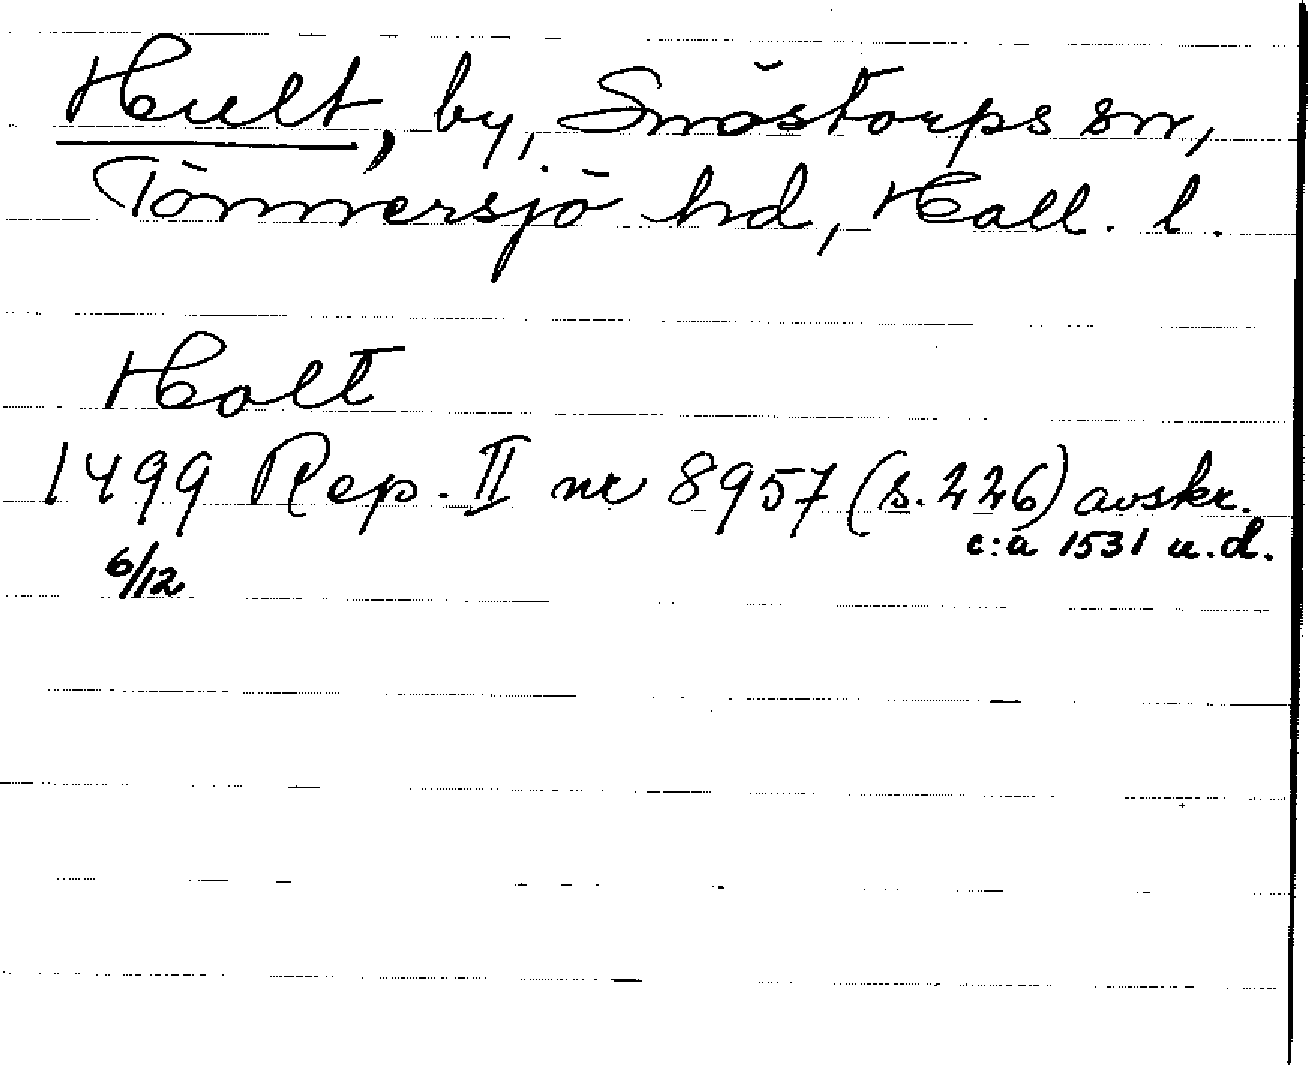 Hult, by, Snöstorps sn,
Tönnersjö hd, Hall. l.
Holt
1499 Rep. II nr 8957 (s. 226) avskr.
6/12 c:a 1531 u.d.